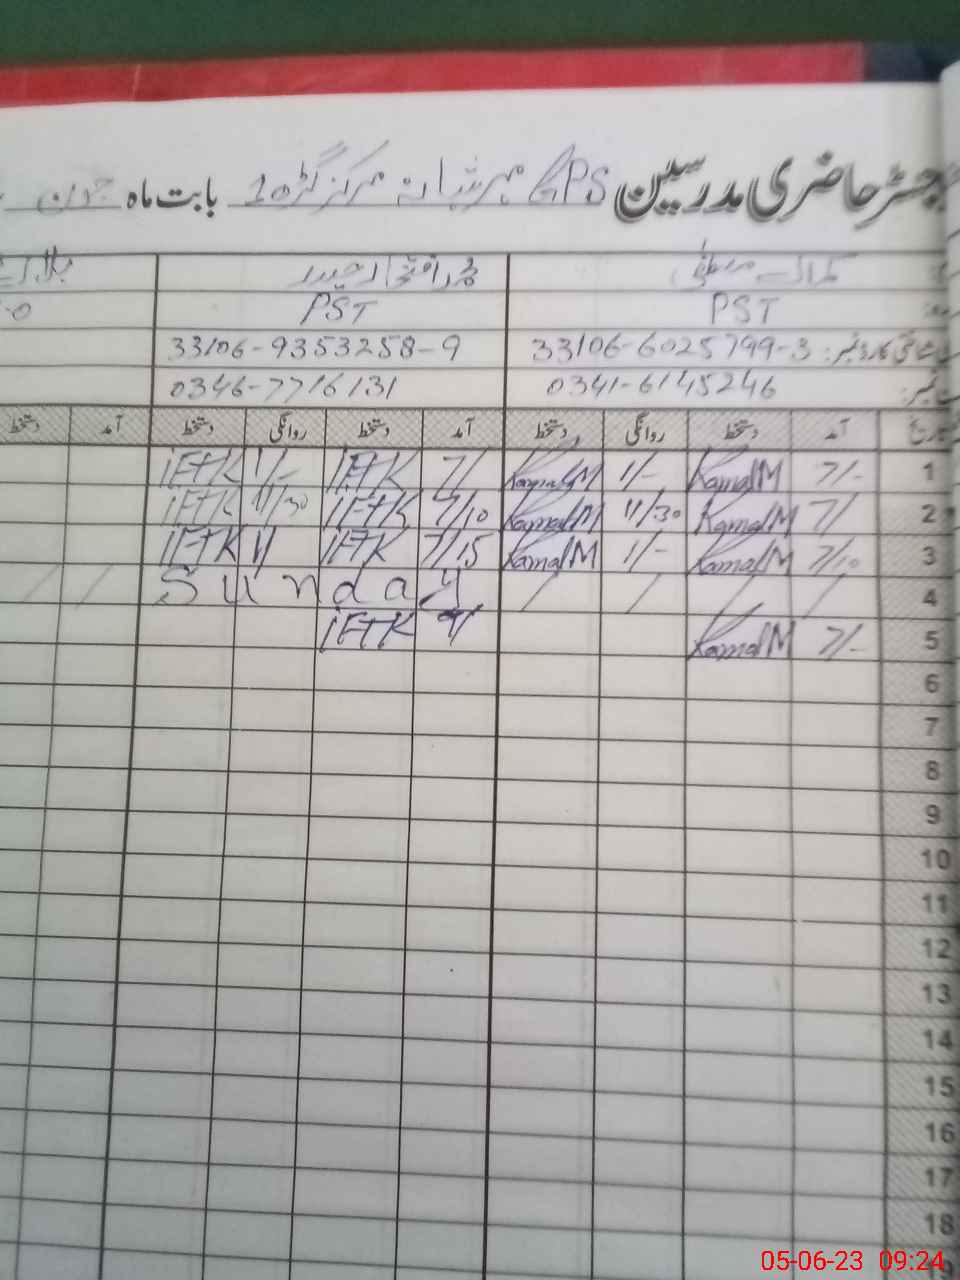 رجسٹر حاضری مدرسین GPS مرکز گڑھ 10 بابت ماہ جون
کمال مصطفیٰ محمد افتخار حیدر
PST PST
شناختی کارڈ نمبر: 33106-6025799-3 33106-9353258-9
نمبر: 0341-6145246 0346-7716131
تاریخ آمد دستخط روانگی دستخط آمد دستخط روانگی دستخط آمد دستخط
1 7/- KamalM 1/- KamalM 7/ IFTK 1/- IFTK
2 7/ KamalM 11/30 KamalM 7/10 IFTK 11/30 IFTK
3 7/10 KamalM 1/- KamalM 7/15 IFTK 1/ IFTK
4 / / / / Sunday / /
5 7/- KamalM IFTK
6
7
8
9
10
11
12
13
14
15
16
17
18
19
05-06-23 09:24